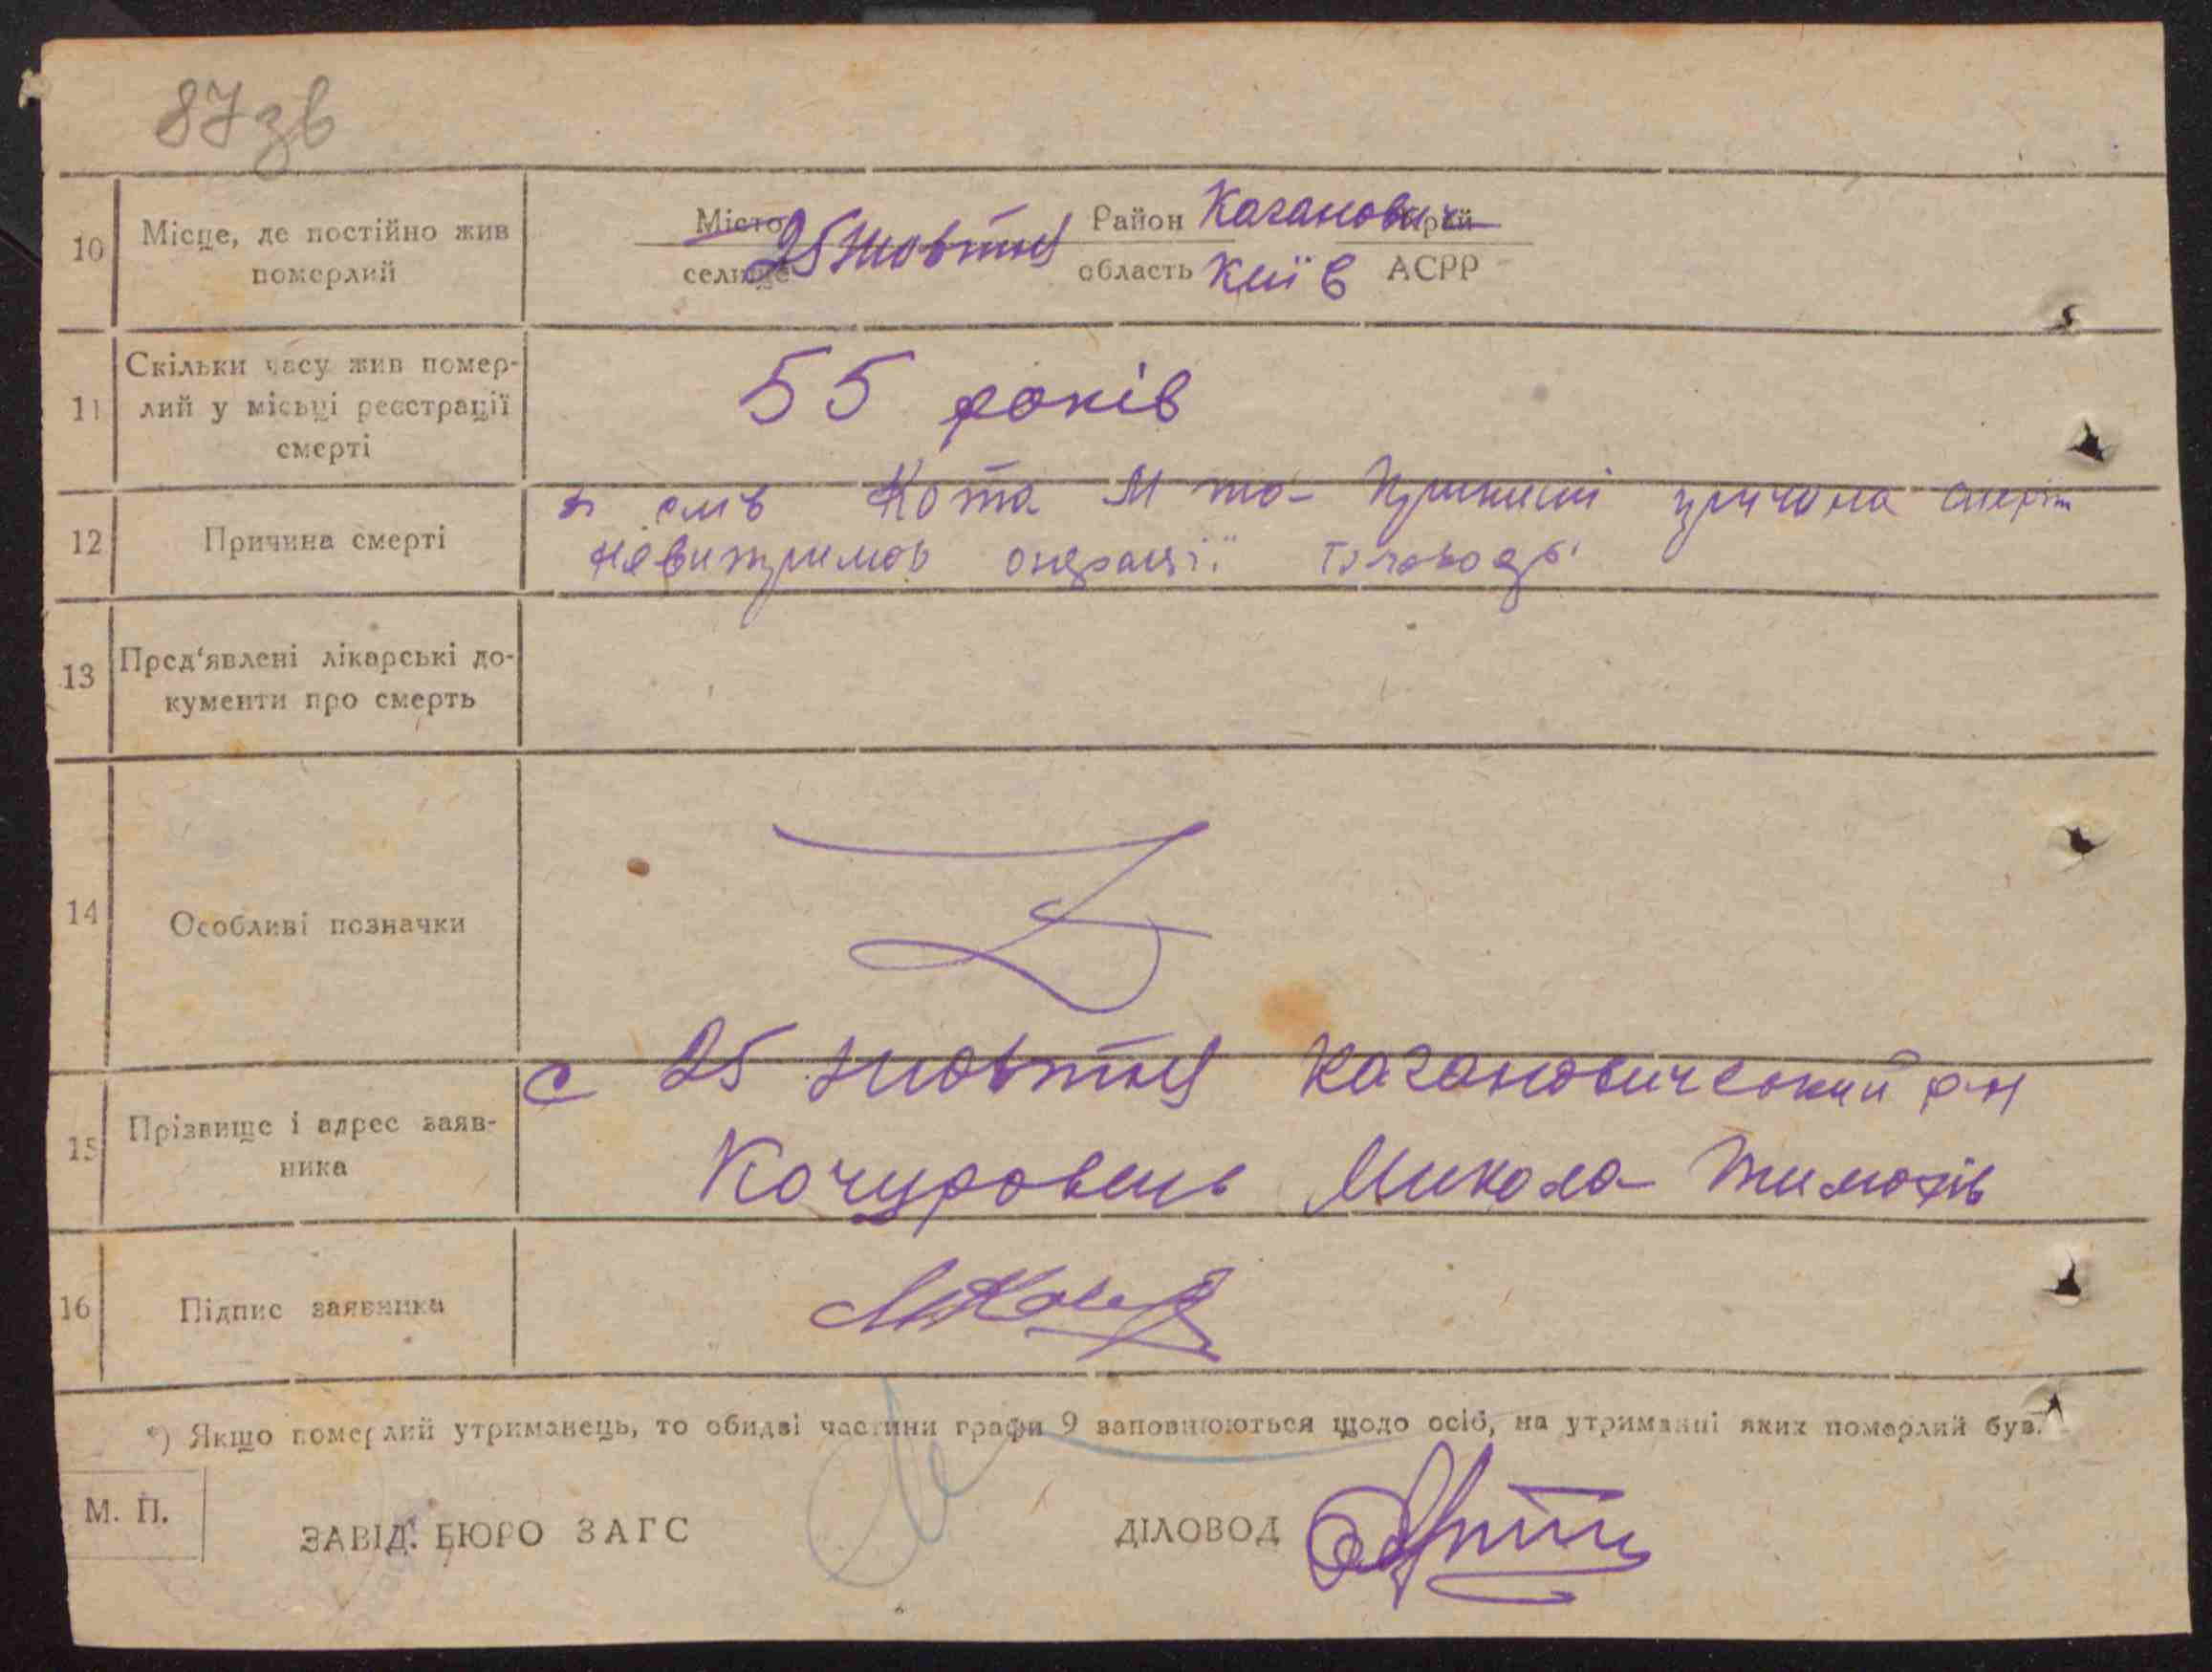 87зв
10 Місце, де постійно жив померлий
Місто селище 25 Жовтня Район Каганович Край
область Київ АСРР
11 Скільки часу жив помер-
лий у місьці реєстрації
смерті
55 років
12 Причина смерті
зі слів М причина смерті
невитримав операції
13 Пред'явлені лікарські до-
кументи про смерть
14 Особливі позначки
с 25 Жовтня Кагановичеський р-н
15 Прізвище і адрес заяв-
ника
Микола Тимохів
16 Підпис заявника
*) Якщо померлий утриманець, то обидві частини графи 9 заповнюються щодо осіб, на утриманні яких померлий був.
М. П.
ЗАВІД. БЮРО ЗАГС ДІЛОВОД